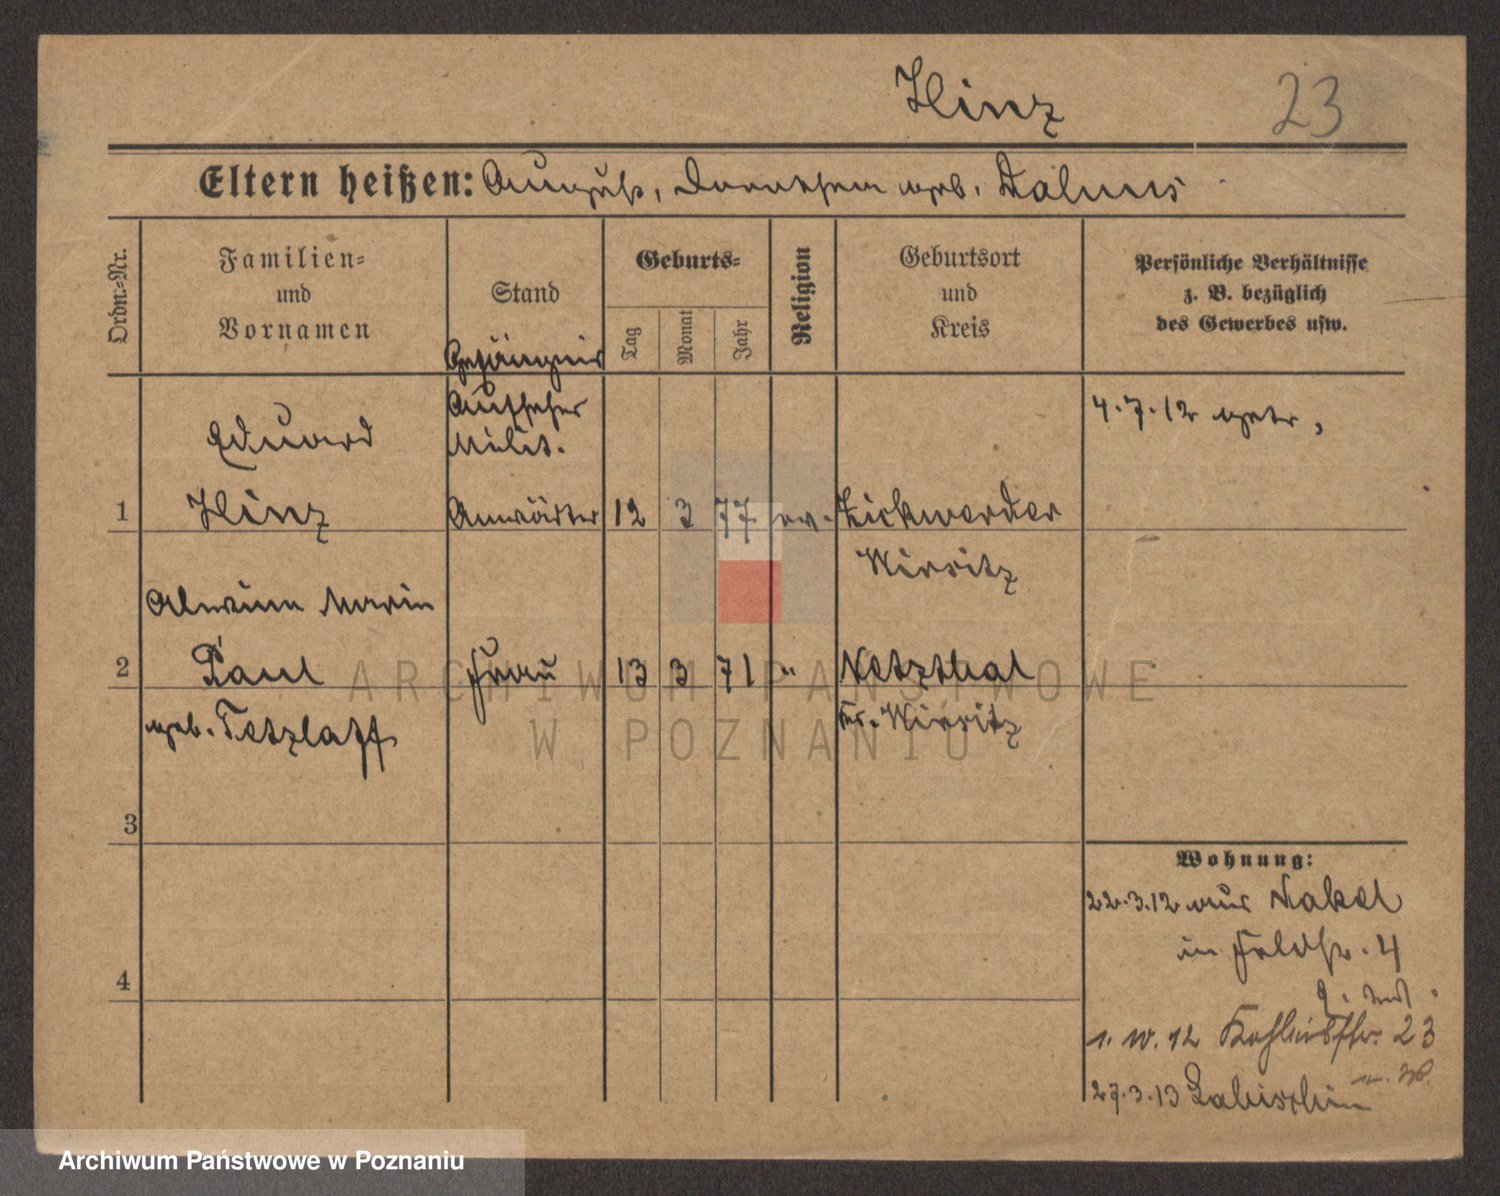 Hinz 23
Eltern heißen: August, Dorothea geb. Dalms
Ordn.-Nr.
Familien-
und
Vornamen
Stand
Geburts-
Tag
Monat
Jahr
Religion
Geburtsort
und
Kreis
Persönliche Verhältnisse
z. B. bezüglich
des Gewerbes usw.
Gefängnis
Aufseher
Milit.
Anwärter
Eduard
1 Hinz 12 3 77 ev. Zickwerder
Wirsitz
4.7.12 getr.
Alwine Marie
2 Paul Frau 13 3 71 " Netzthal
geb. Tetzlaff Kr. Wirsitz
3
4
Wohnung:
22.3.12 aus Nakel
in Feldstr. 4
1. 10. 12 23
27.3.13 Labischin
ARCHIWUM PAŃSTWOWE
W POZNANIU
Archiwum Państwowe w Poznaniu